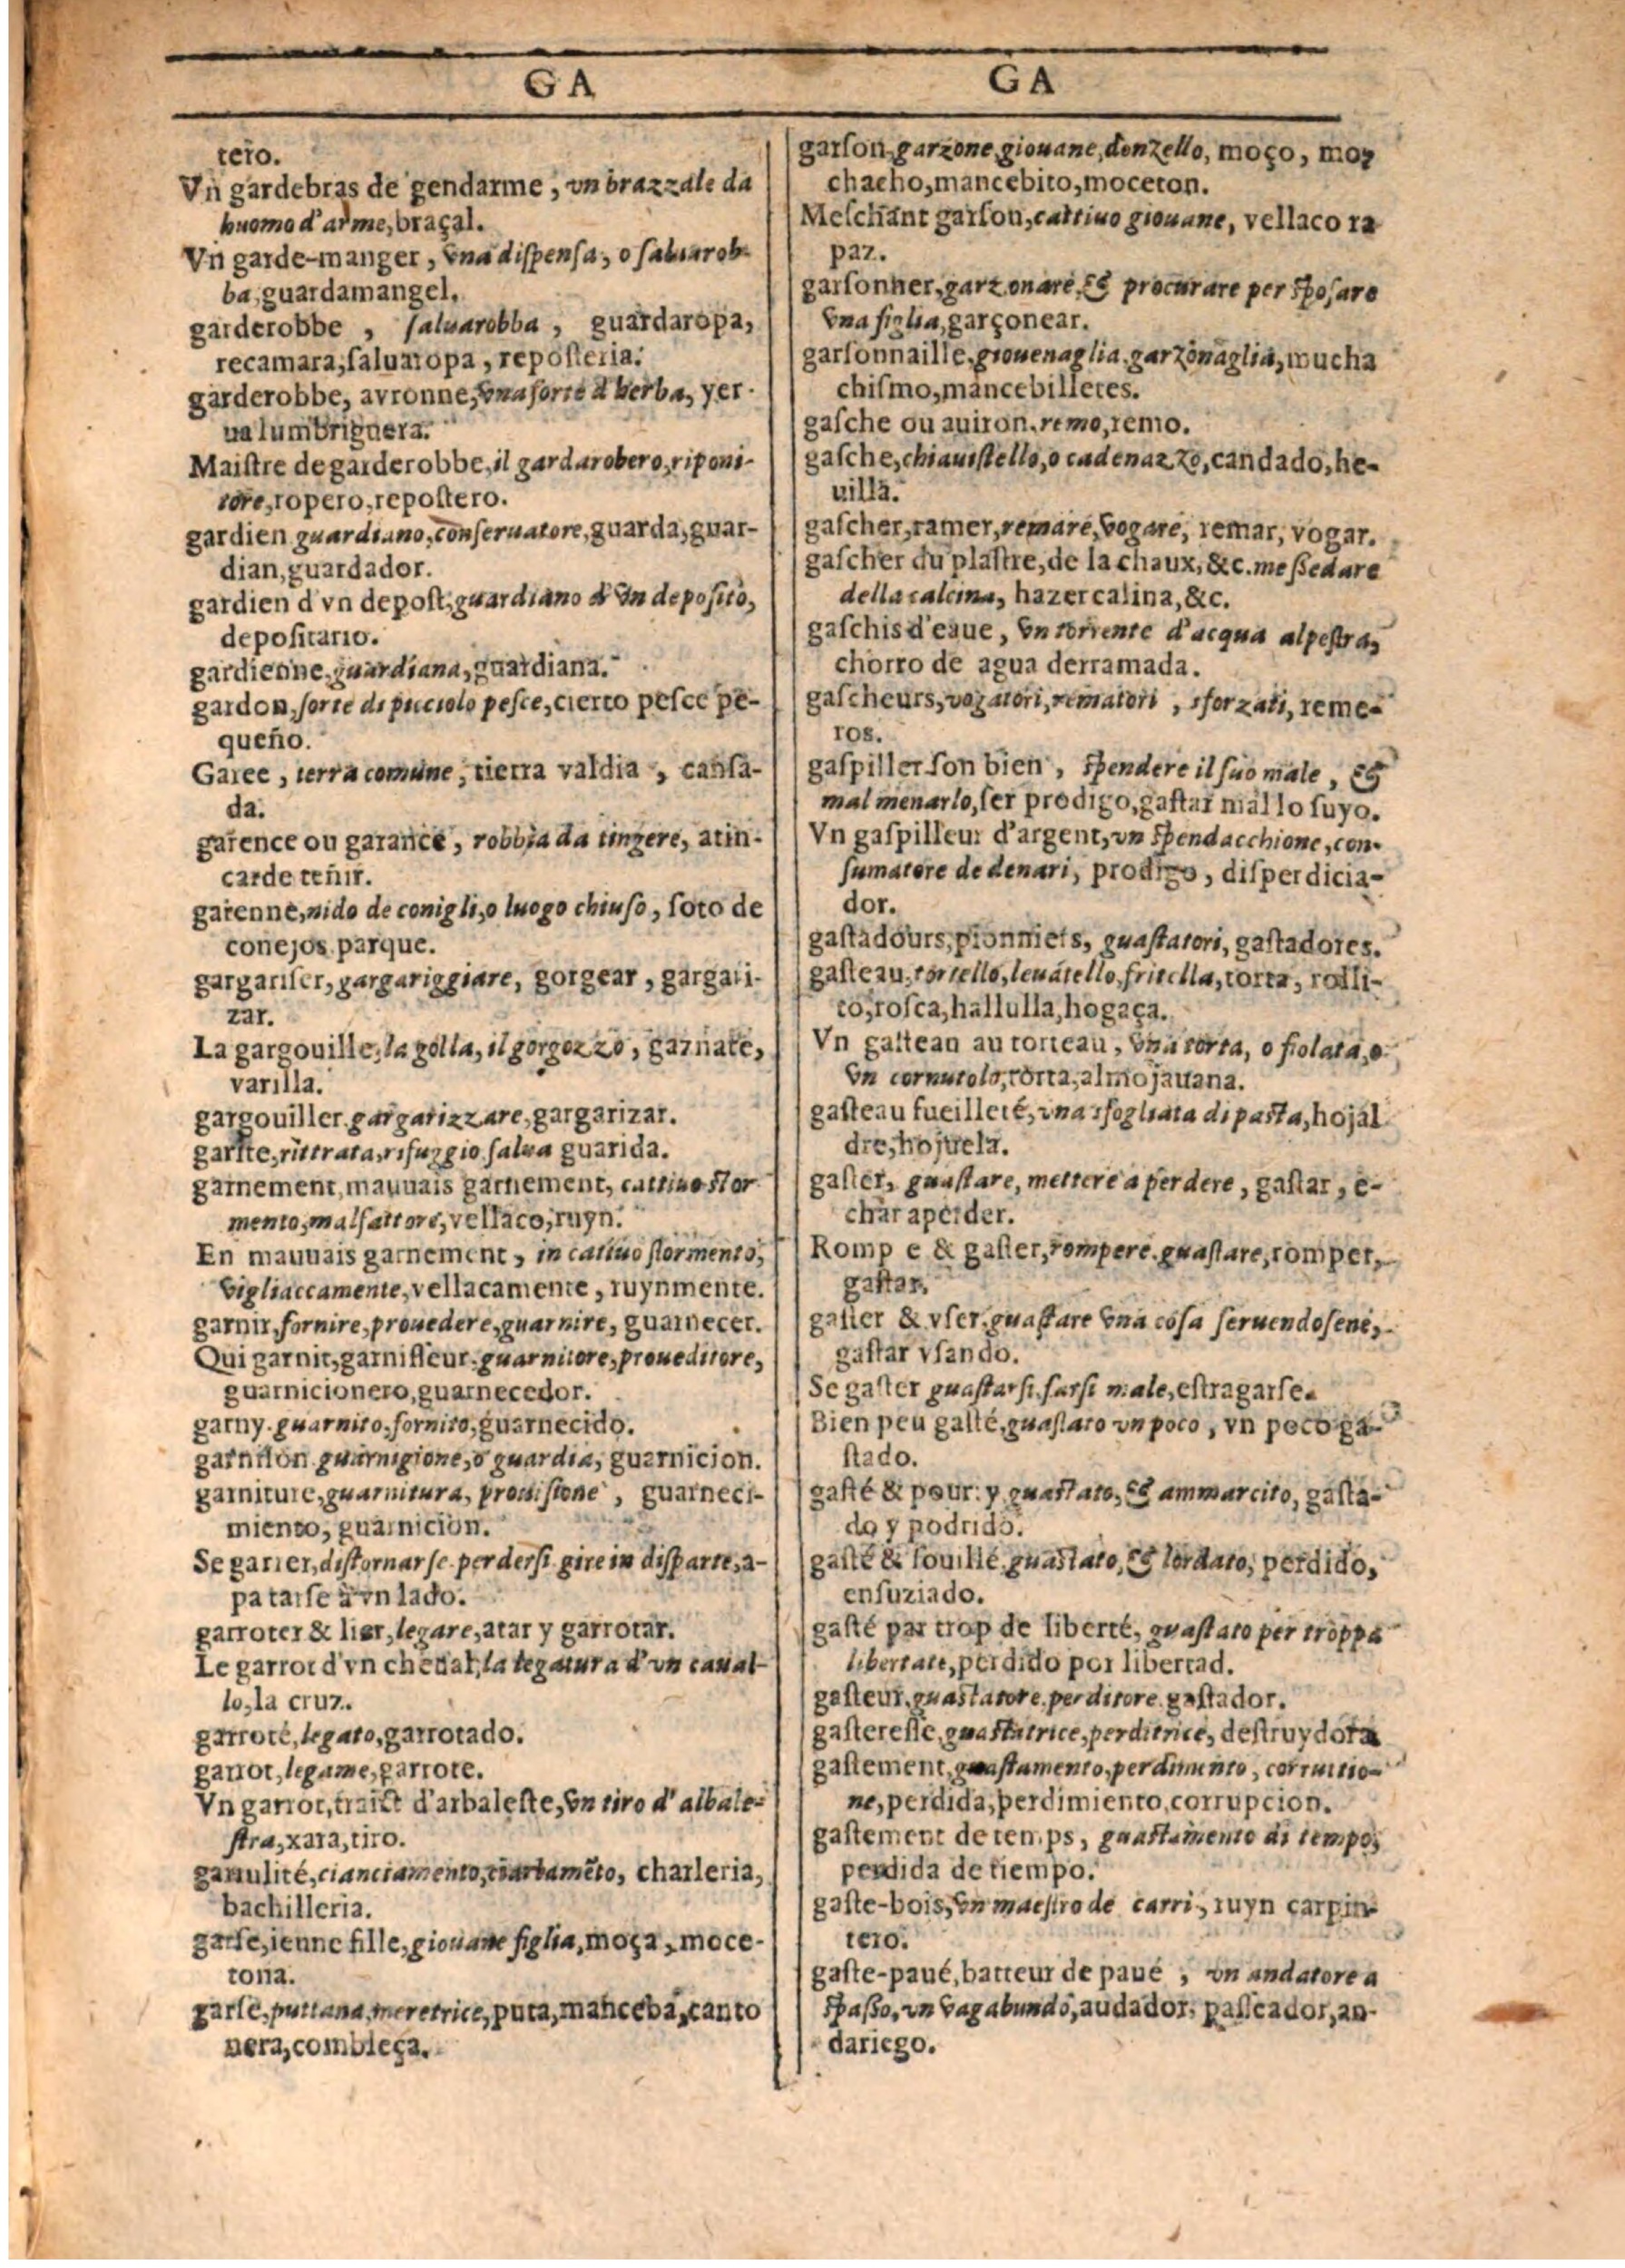 GA
tero.
Vn gardebras de gendarme, vn brazzale da
huomo d'arme, braçal.
Vn garde-manger, vna dispensa, o saluarob-
ba, guardamangel.
garderobbe, saluarobba, guardaropa,
recamara, saluaropa, reposteria.
garderobbe, avronne, vna sorte d'herba, yer-
ua lumbriguera.
Maistre de garderobbe, il gardarobero, riponi-
tore, ropero, repostero.
gardien guardiano, conseruatore, guarda, guar-
dian, guardador.
gardien d'vn depost, guardiano d'vn deposito,
depositario.
gardienne, guardiana, guardiana.
gardon, sorte di picciolo pesce, cierto pesce pe-
queño.
Garee, terra comune, tierra valdia, cansa-
da.
garence ou garance, robbia da tingere, atin-
carde teñir.
garenne, nido de conigli, o luogo chiuso, soto de
conejos parque.
gargariser, gargariggiare, gorgear, gargari-
zar.
La gargouille, la golla, il gorgozzo, gaznate,
varilla.
gargouiller gargarizzare, gargarizar.
garite, rittrata, rifuggio salua guarida.
garnement, mauuais garnement, cattiuo stor
mento, malfattore, vellaco, ruyn.
En mauuais garnement, in cattiuo stormento,
vigliaccamente, vellacamente, ruynmente.
garnir, fornire, prouedere, guarnire, guarnecer.
Qui garnit, garnisseur, guarnitore, proueditore,
guarnicionero, guarnecedor.
garny guarnito, fornito, guarnecido.
garnison guarnigione, o guardia, guarnicion.
garniture, guarnitura, prouisione, guarneci-
miento, guarnicion.
Se garrer, distornarse perdersi gire in disparte, a-
partarse à vn lado.
garroter & lier, legare, atar y garrotar.
Le garrot d'vn cheual, la legatura d'vn caual-
lo, la cruz.
garroté, legato, garrotado.
garrot, legame, garrote.
Vn garrot, traict d'arbaleste, vn tiro d'albale-
stra, xara, tiro.
garrulité, cianciamento, ciarlamẽto, charleria,
bachilleria.
garse, ieune fille, giouane figlia, moça, moce-
tona.
garse, puttana, meretrice, puta, manceba, canto
nera, combleça.
GA
garson, garzone, giouane, donzello, moço, mo-
chacho, mancebito, moceton.
Meschant garson, cattiuo giouane, vellaco ra
paz.
garsonner, garzonare, & procurare per sposare
vna figlia, garçonear.
garsonnaille, giouenaglia, garzonaglia, mucha
chismo, mancebilletes.
gasche ou auiron, remo, remo.
gasche, chiauistello, o cadenazzo, candado, he-
uilla.
gascher, ramer, remare, vogare, remar, vogar.
gascher du plastre, de la chaux, &c. messedare
della calcina, hazer calina, &c.
gaschis d'eaue, vn torrente d'acqua alpestra,
chorro de agua derramada.
gascheurs, vogatori, rematori, sforzati, reme-
ros.
gaspiller son bien, spendere il suo male, &
mal menarlo, ser prodigo, gastar mal lo suyo.
Vn gaspilleur d'argent, vn spendacchione, con-
sumatore de denari, prodigo, disperdicia-
dor.
gastadours, pionniers, guastatori, gastadores.
gasteau, tortello, leuatello, fritella, torta, rolli-
to, rosca, hallulla, hogaça.
Vn gasteau au torteau, vna torta, o fiolata, o
vn cornutolo, torta, almojauana.
gasteau fueilleté, vna sfogliata di pasta, hojal
dre, hojuela.
gaster, guastare, mettere a perdere, gastar, e-
char a perder.
Romp e & gaster, rompere guastare, romper,
gastar.
gaster & vser, guastare vna cosa seruendosene,
gastar vsando.
Se gaster guastarsi, farsi male, estragarse.
Bien peu gasté, guastato vn poco, vn poco ga-
stado.
gasté & pourry guastato, & ammarcito, gasta-
do y podrido.
gasté & souillé guastato, & lordato, perdido,
ensuziado.
gasté par trop de liberté, guastato per troppa
libertate, perdido por libertad.
gasteur, guastatore perditore gastador.
gasteresse, guastatrice, perditrice, destruydora
gastement, guastamento, perdimento, corruttio-
ne, perdida, perdimiento, corrupcion.
gastement de temps, guastamento di tempo,
perdida de tiempo.
gaste-bois, vn maestro de carri, ruyn carpin-
tero.
gaste-paué, batteur de paué, vn andatore a
spasso, vn vagabundo, audador, passeador, an-
dariego.